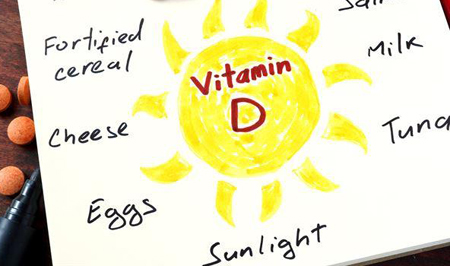 Fortified
cereal
Milk
Vitamin
D
Cheese
Tuna
Eggs
Sunlight